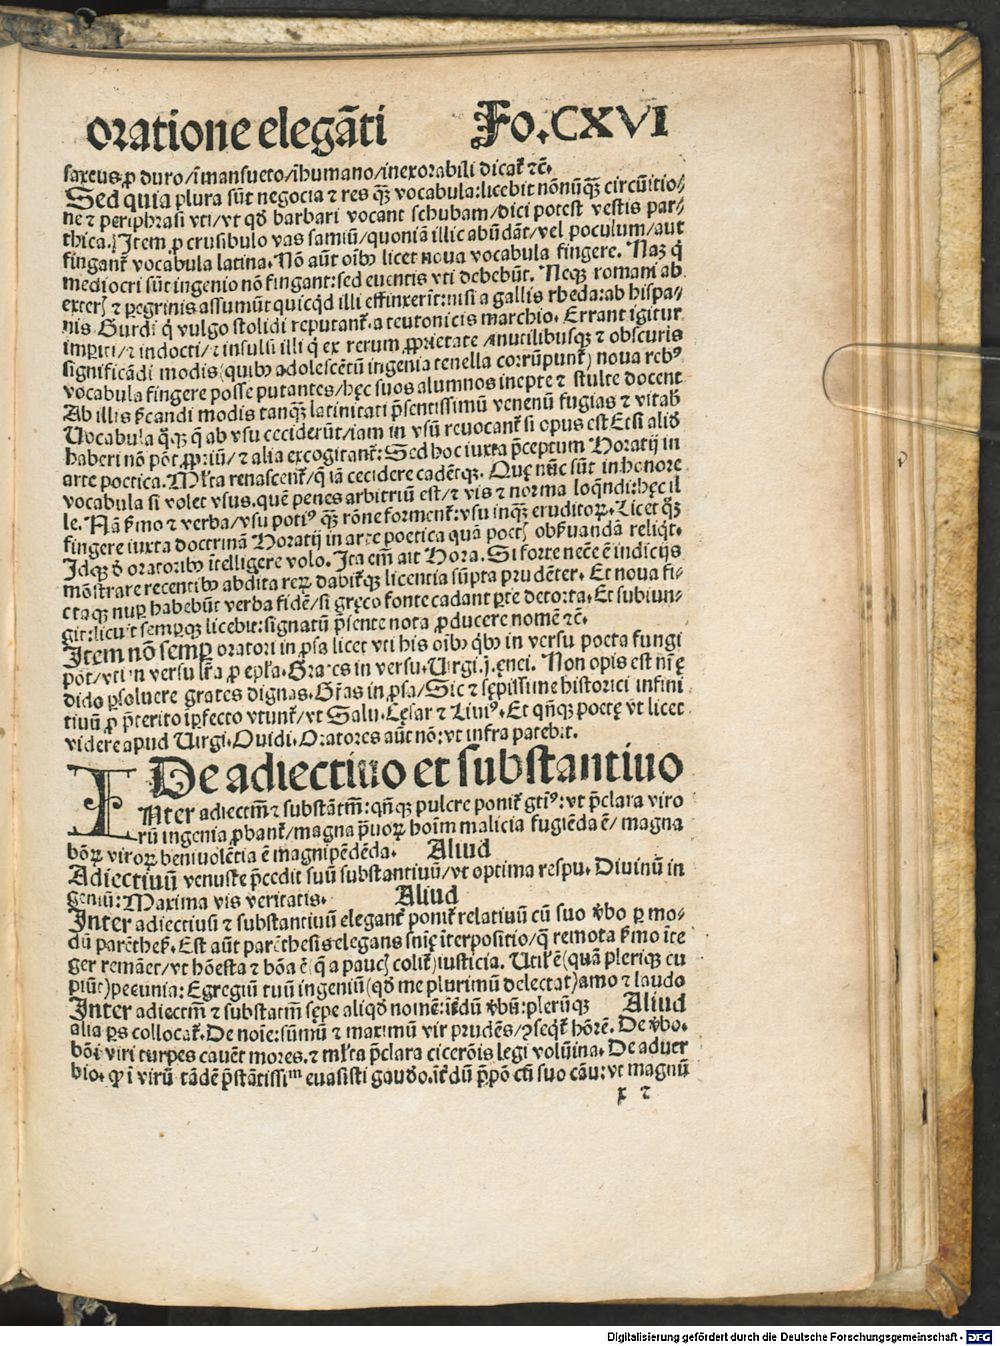 oratione elegãti Fo.CXVI
saxeus, ꝓ duro/ĩmansueto/ĩhumano/inexorabili dicat̃ ⁊c̃.
Sed quia plura sũt negocia ⁊ res q̃ʒ vocabula: licebit nõnũq̃ʒ circũitio/
ne ⁊ periphrasi vti/vt qď barbari vocant schubam/dici potest vestis par/
thica. Item ꝓ crusibulo vas samiũ/quoniã illic abũdãt/vel poculum/aut
fingant̃ vocabula latina. Nõ aũt oĩbꝰ licet noua vocabula fingere. Naʒ q̃
mediocri sũt ingenio nõ fingant: sed euentis vti debebũt. Neqʒ romani ab
exteris ⁊ pegrinis assumũt quicq̃d illi effinxerĩt: nisi a gallis rheda: ab hispa/
nis Gurdi q̃ vulgo stolidi reputant̃. a teutonicis marchio. Errant igitur
imꝑiti/⁊ indocti/⁊ insulsi illi q̃ ex rerum ꝓprietate/inutilibusqʒ ⁊ obscuris
significãdi modis (quibꝰ adolescẽtũ ingenia tenella corrũpunt̃) noua rebꝰ
vocabula fingere posse putantes/hęc suos alumnos inepte ⁊ stulte docent
Ab illis s̃candi modis tanq̃ʒ latinitati p̃sentissimũ venenũ fugias ⁊ vitab̃
Uocabula q̃qʒ q̃ ab vsu ceciderũt/iam in vsũ reuocant̃ si opus est Et si aliď
haberi nõ põt ꝓpriũ/⁊ alia excogitant̃: Sed hoc iuxta p̃ceptum Horatij in
arte poetica. Ml̃ta renascent̃/q̃ iã cecidere cadẽtqʒ. Quę nũc sũt in honore
vocabula si volet vsus. quẽ penes arbitriũ est/⁊ vis ⁊ norma loq̃ndi: hęc il
le. Nã s̃mo ⁊ verba/vsu potiꝰ q̃ʒ rõne forment̃: vsu inqʒ eruditoꝝ. Licet q̃ʒ
fingere iuxta doctrinã Horatij in arte poetica quã poetis obs̃uandã reliq̃t.
Idqʒ ď oratoribꝰ ĩtelligere volo. Ita em̃ ait Hora. Si forte necẽ ẽ indicijs
mõstrare recentibꝰ abdita reꝝ dabit̃qʒ licentia sũpta prudẽter. Et noua fi/
ctaqʒ nuꝑ habebũt verba fidẽ/si gręco fonte cadant ꝑte detorta. Et subiun/
git: licuit semꝑqʒ licebit: signatũ p̃sente nota ꝓducere nomẽ ⁊c̃.
Item nõ semꝑ oratori in ꝓsa licet vti his oĩbꝰ q̃bꝰ in versu poeta fungi
põt/vti in versu lr̃a ꝓ epl̃a. Grates in versu. Uirgi. j. ęnei. Non opis est nr̃ę
dido ꝑsoluere grates dignas. Gr̃as in ꝓsa/Sic ⁊ sępissime historici infini
tiuũ ꝓ p̃terito ĩꝑfecto vtunt̃/vt Salu. Cęsar ⁊ Liuiꝰ. Et qñqʒ poetę vt licet
videre apud Uirgi. Ouidi. Oratores aũt nõ: vt infra patebit.
De adiectiuo et substantiuo
INter adiectiũ ⁊ substãtiũ: qñqʒ pulcre ponit̃ gtĩꝰ: vt p̃clara viro
rũ ingenia ꝓbant̃/magna p̃uoꝝ hoĩm malicia fugiẽda ẽ/magna
bõoꝝ viroꝝ beniuolẽtia ẽ magnipẽdẽda. Aliud
Adiectiuũ venuste p̃cedit suũ substantiuũ/vt optima respu. Diuinũ in
geniũ: Maxima vis veritatis. Aliud
Inter adiectiuũ ⁊ substantiuũ elegant̃ ponit̃ relatiuũ cũ suo v̓bo ꝑ mo/
dũ parẽthes̃. Est aũt parẽthesis elegans snĩę ĩterpositio/q̃ remota s̃mo ĩte
ger remãet/vt hõesta ⁊ bõa ẽ (q̃ a paucis colit̃) iusticia. Utile ẽ (quã pleriqʒ cu
piũt) pecunia: Egregiũ tuũ ingeniũ (qď me plurimũ delectat) amo ⁊ laudo
Inter adiectiũ ⁊ substatiũ sępe aliqď nomẽ: ĩt̃dũ v̓bũ: plerũqʒ Aliud
alia ꝑs collocat̃. De noĩe: sũmũ ⁊ maximũ vir prudẽs/ꝯseqt̃ hõrẽ. De v̓bo.
bõi viri turpes cauẽt mores. ⁊ ml̃ta p̃clara cicerõis legi volũina. De aduer
bio. qꝛ ĩ virũ tãdẽ p̃stãtissimᵐ euasisti gaudeo. ĩt̃dũ p̃põ cũ suo cãu: vt magnũ
x 2